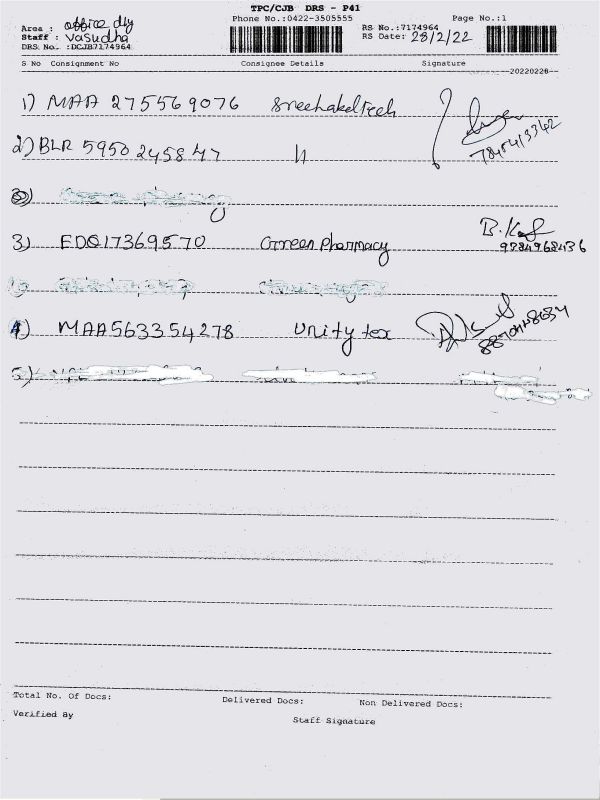 TPC/CJB DRS - P41
Phone No.:0422-3505555 Page No.:1
Area : office dly
Staff : Vasudha
DRS No. :DCJB7174964
RS No.:7174964
RS Date: 28/2/22
S No Consignment No Consignee Details Signature
20220228
1) MAA 275569076
2) BLR 5950 245847 11
3) EDQ17369570 Green pharmacy B.K
9784968436
4) MAA563354278 Unity tex
5)
Total No. Of Docs: Delivered Docs: Non Delivered Docs:
Verified By Staff Signature